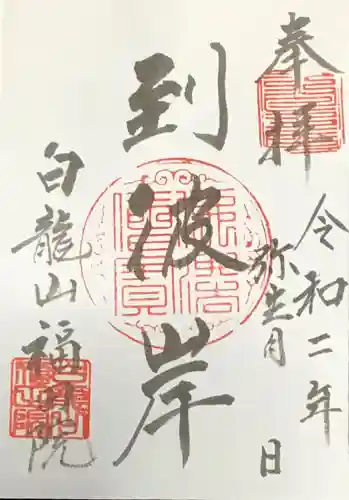 奉拝
令和二年
弥生月 日
到波岸
白龍山福田院